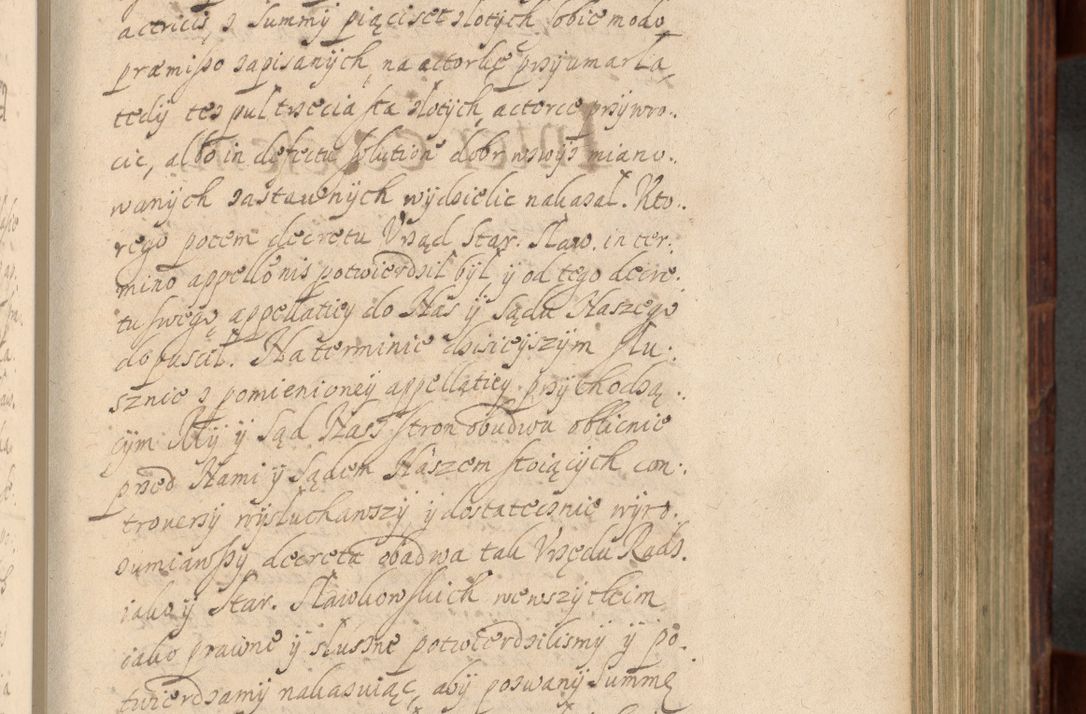 actricis, z summy piąciset złotych sobie modo
præmisso zapisanych, na actorkę przyumarłą,
tedy tez pul trzecia sta złotych, actorce przywro-
cic, albo in defectu solutione dobr wswyż miano-
wanych zastawnych wydzielic nakazał. Kto-
rego potem decretu Vrząd Star. Sław. in ter-
mino appellonis potwierdził był, y od tego decre-
tu swego appellatiey do Nas y Sądu Naszego
dopuscił. Na terminie dzisieyszym słu-
sznie z pomienioney appellatiey przychodzą-
cym My y Sąd Nasz stron obudwu oblicznie
przed Nami y Sądem Naszem stoiących con-
troversy wysłuchawszy y dostatecznie wyro-
zumiawszy decreta obadwa tak Vrzędu Radz.
iako y Star. Sławkowskich wewszytkim
iako prawne y słuszne potwierdzilismy y po-
twierdzamy nakazuiąc, aby pozwany summę